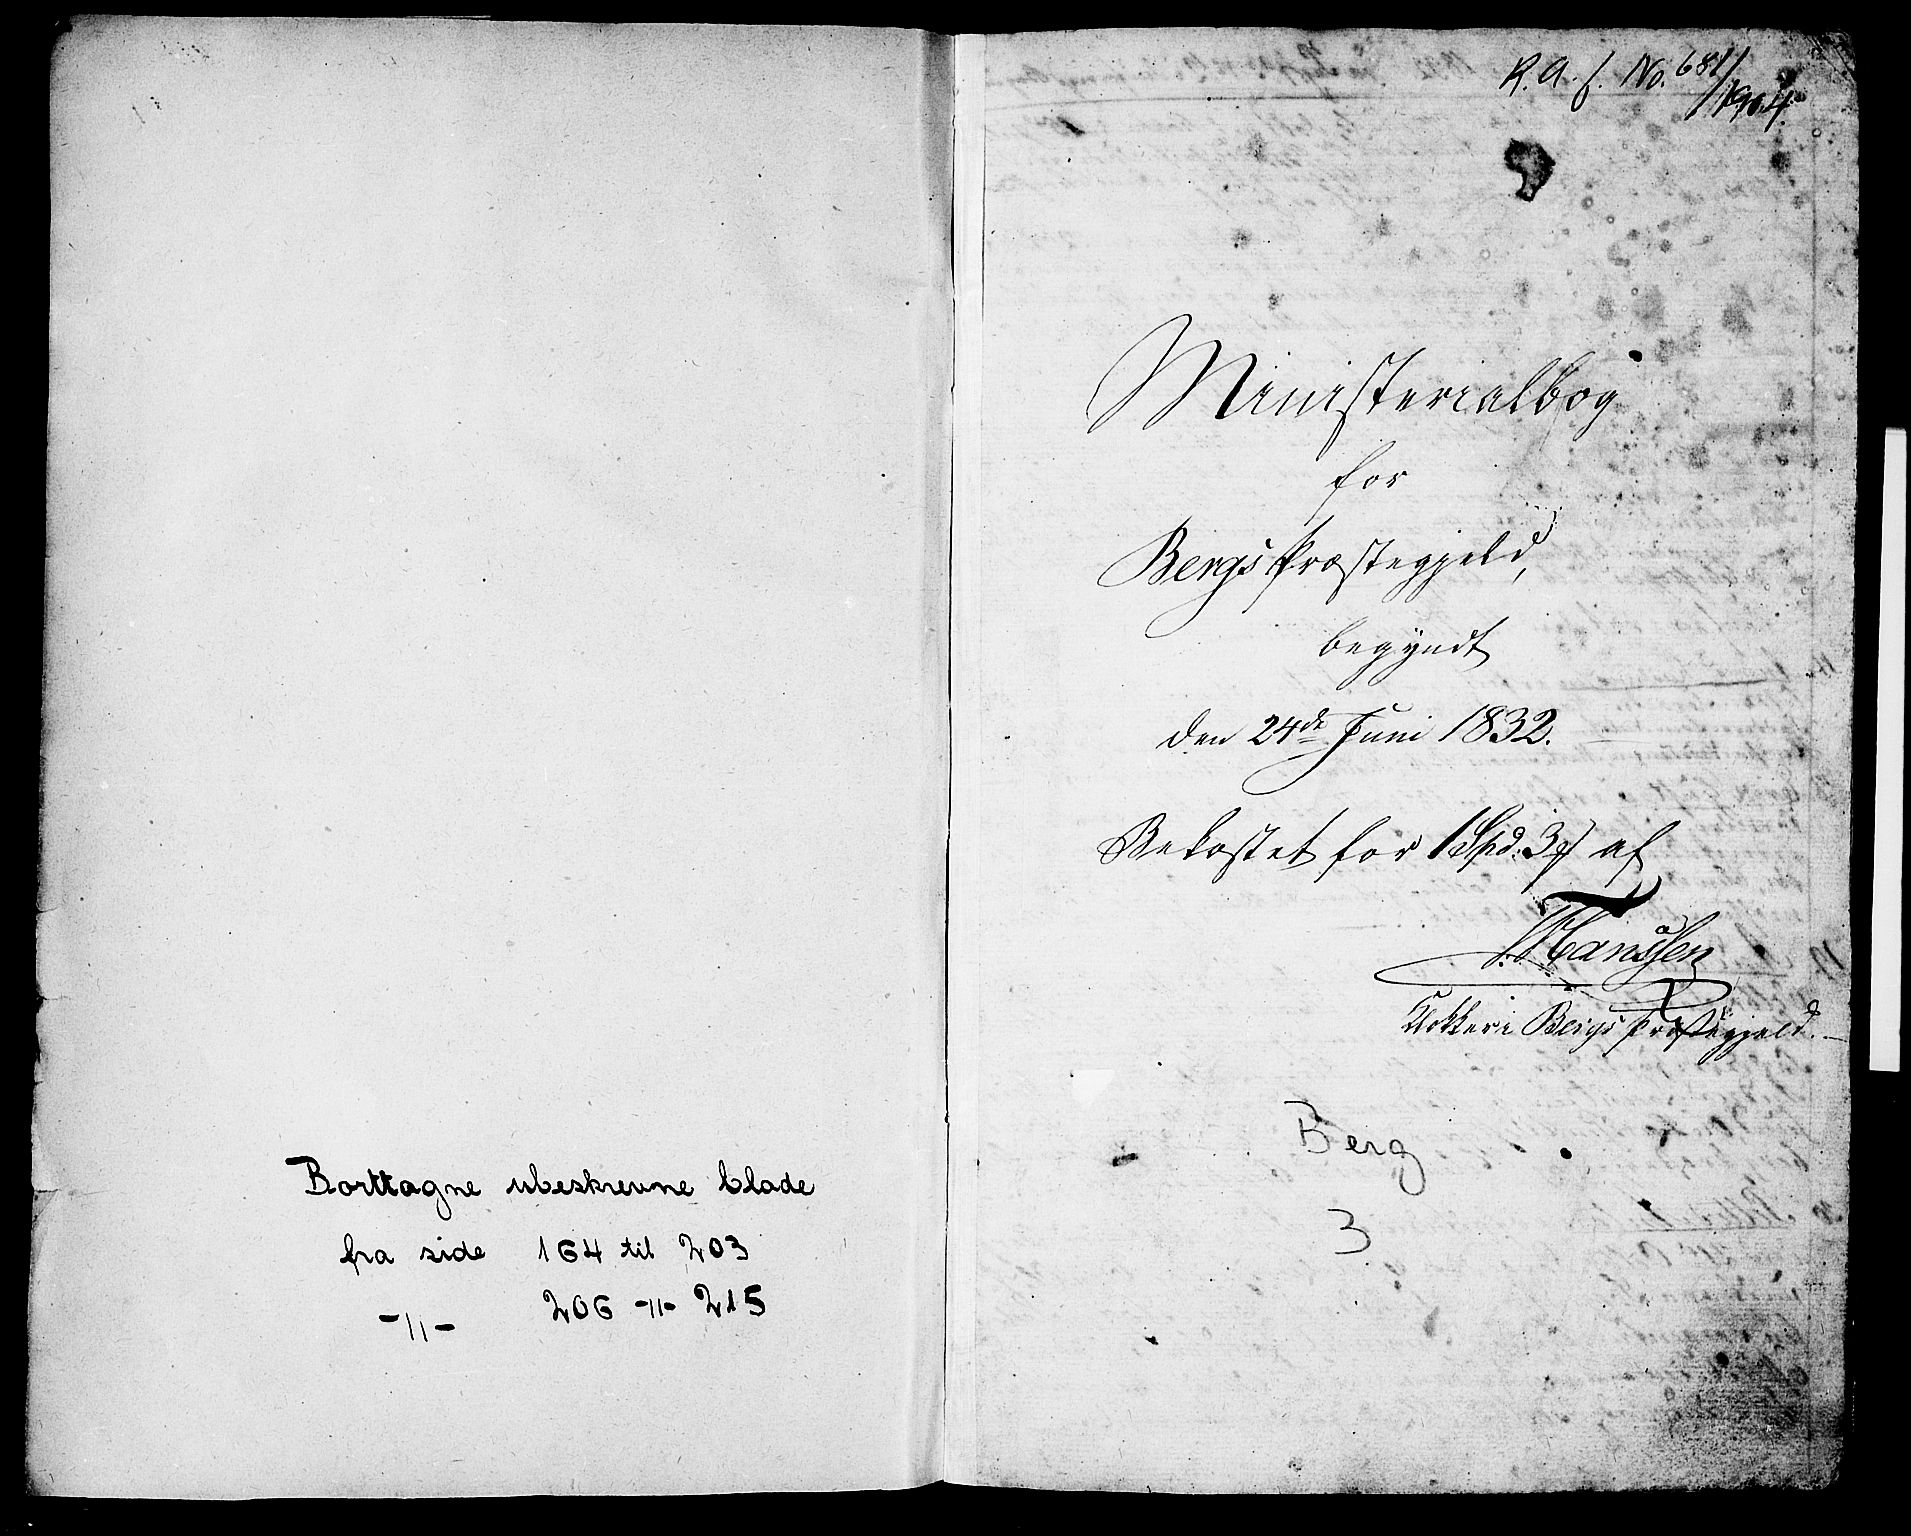 Borttagne ubeskrevne blade
fra side 164 til 203
-"- 206 -"- 215
R. A. f. No. 681/1904.
Ministerialbog
for
Bergs Præstegjeld,
begyndt
den 24de Juni 1832.
Bekostet for 1 Spd: 3 af
Hanssen
Klokker i Bergs Præstegjeld.
Berg
3